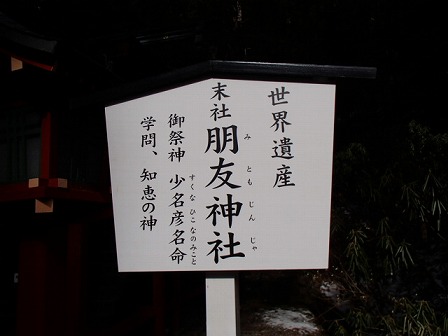 世界遺産
末社 朋友神社
みともじんじゃ
御祭神 少名彦名命
すくなひこなのみこと
学問、知恵の神